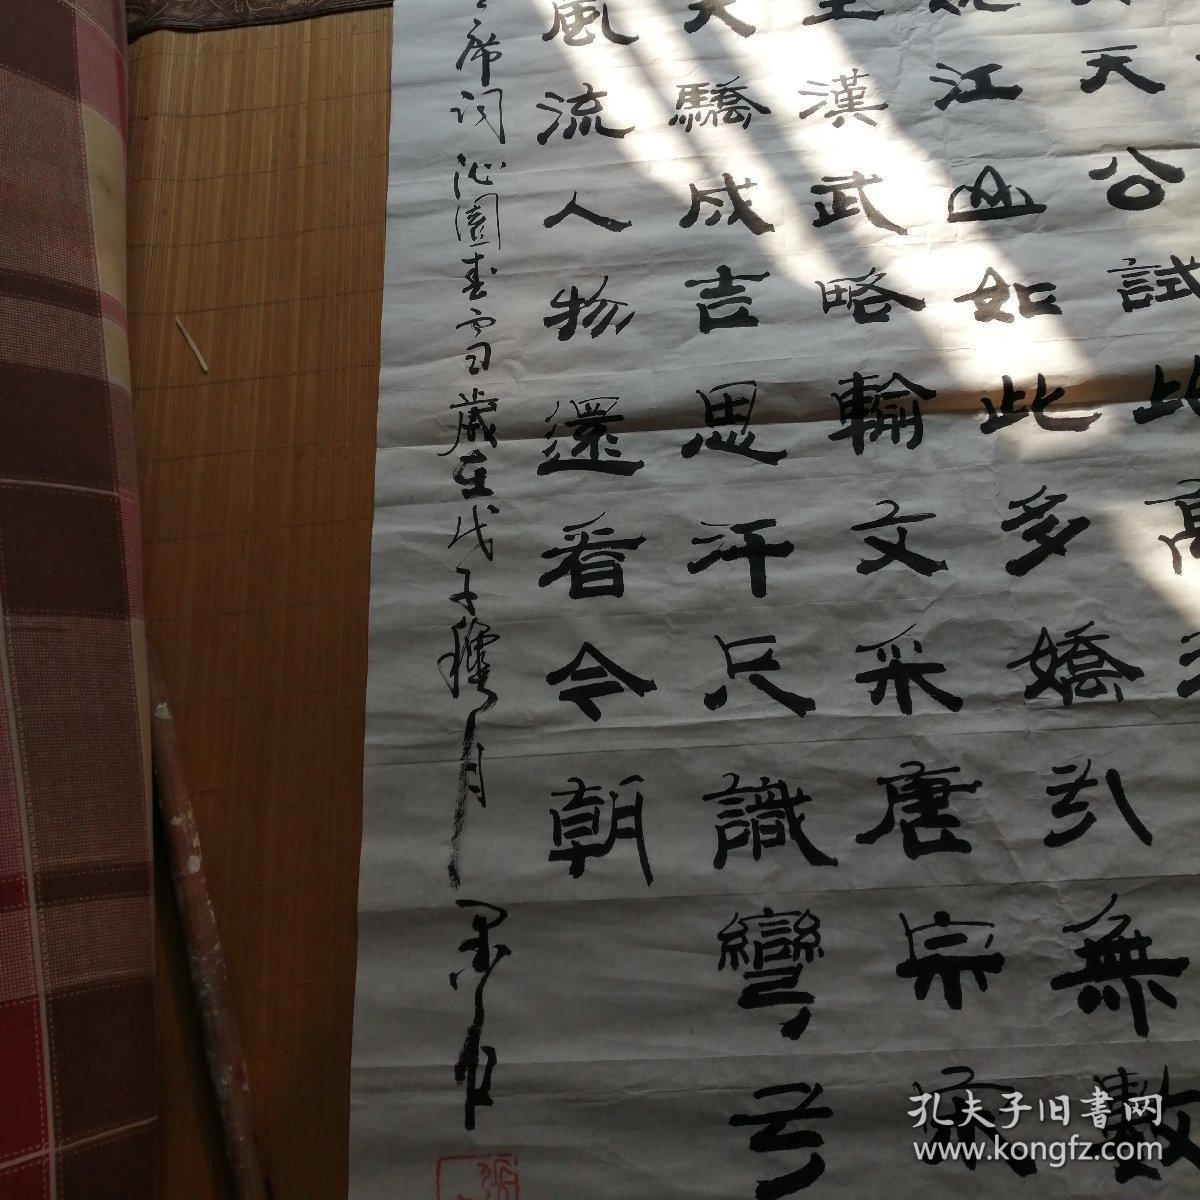 天公試比高
江山如此多嬌引無數
漢武略輸文采唐宗宋
天驕成吉思汗只識彎弓
風流人物還看今朝
席词沁園春雪歲在戊子月
孔夫子旧書网
www.kongfz.com